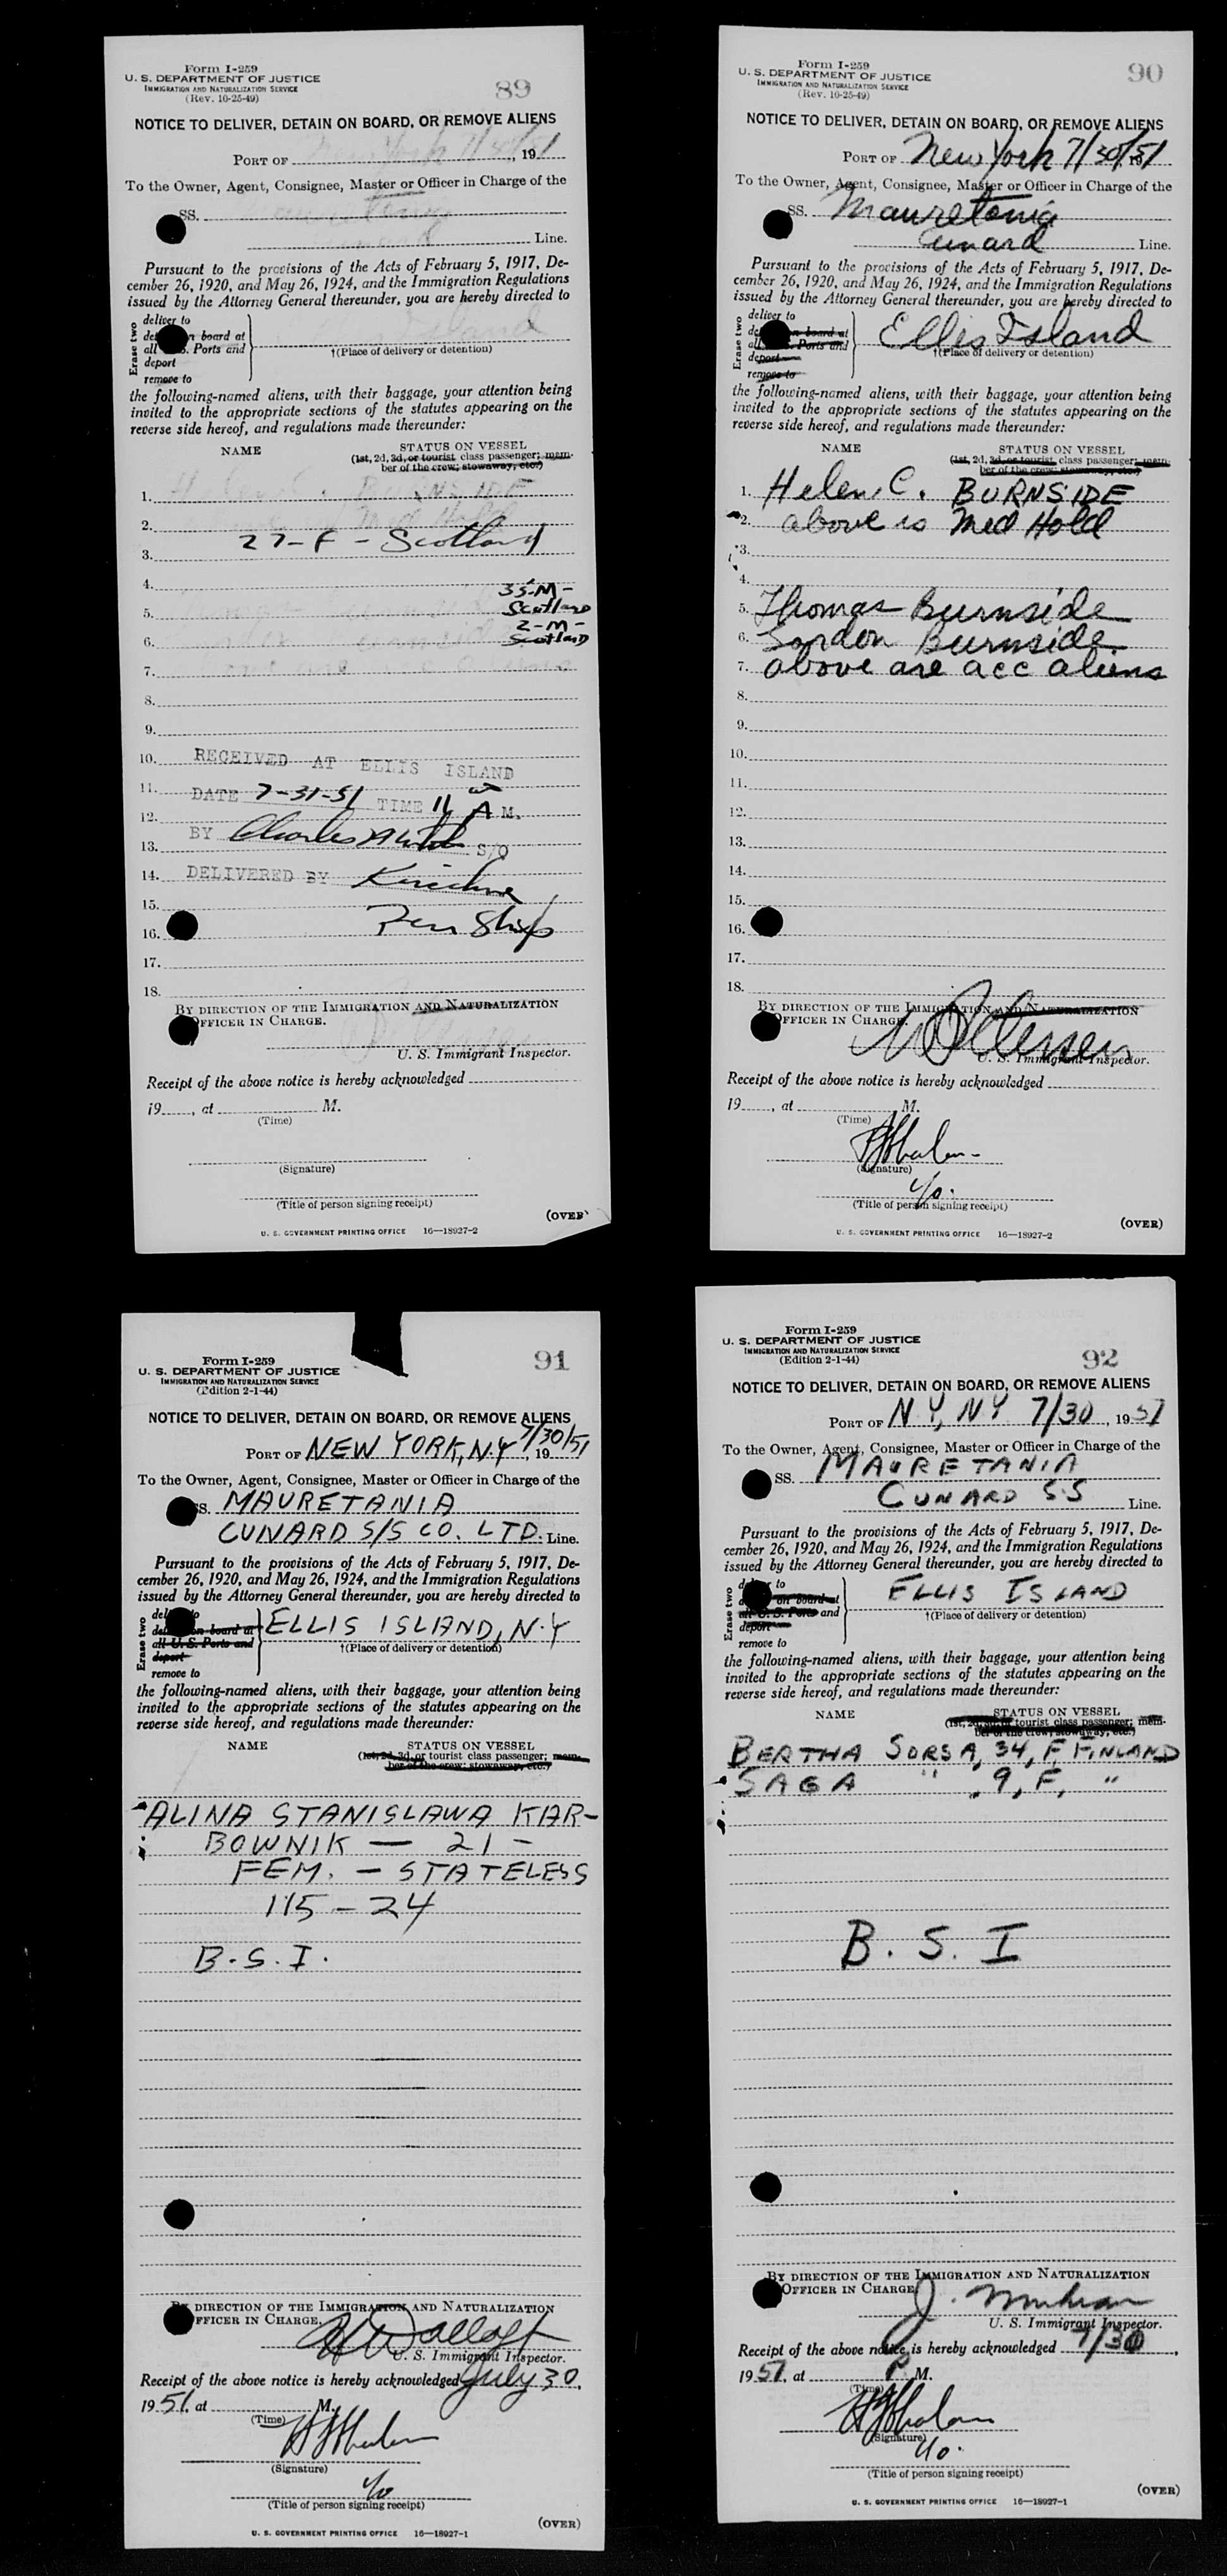 Form I-259
U. S. DEPARTMENT OF JUSTICE
IMMIGRATION AND NATURALIZATION SERVICE
(Rev. 10-25-49)
89
NOTICE TO DELIVER, DETAIN ON BOARD, OR REMOVE ALIENS
PORT OF New York 7/30/51, 19
To the Owner, Agent, Consignee, Master or Officer in Charge of the
SS.
Line.
Pursuant to the provisions of the Acts of February 5, 1917, De-
cember 26, 1920, and May 26, 1924, and the Immigration Regulations
issued by the Attorney General thereunder, you are hereby directed to
Erase two
deliver to
on board at
all Ports and
deport
remove to
Island
†(Place of delivery or detention)
the following-named aliens, with their baggage, your attention being
invited to the appropriate sections of the statutes appearing on the
reverse side hereof, and regulations made thereunder:
NAME STATUS ON VESSEL
(1st, 2d, 3d, or tourist class passenger; mem-
ber of the crew; stowaway, etc.)
1.
2.
27-F - Scotland
3.
4.
35-M-
5. Scotland
2-M-
6. Scotland
7.
8.
9.
10. RECEIVED AT ELLIS ISLAND
11. DATE 7-31-51 TIME 11 A M.
12.
13. BY Charles S/O
14. DELIVERED BY
15.
16.
17.
18.
BY DIRECTION OF THE IMMIGRATION AND NATURALIZATION
OFFICER IN CHARGE.
U. S. Immigrant Inspector.
Receipt of the above notice is hereby acknowledged
19, at M.
(Time)
(Signature)
(Title of person signing receipt)
(OVER)
U. S. GOVERNMENT PRINTING OFFICE 16—18927-2
Form I-259
U. S. DEPARTMENT OF JUSTICE
IMMIGRATION AND NATURALIZATION SERVICE
(Rev. 10-25-49)
90
NOTICE TO DELIVER, DETAIN ON BOARD, OR REMOVE ALIENS
PORT OF New York 7/30/51
To the Owner, Agent, Consignee, Master or Officer in Charge of the
SS. Mauretania
Cunard Line.
Pursuant to the provisions of the Acts of February 5, 1917, De-
cember 26, 1920, and May 26, 1924, and the Immigration Regulations
issued by the Attorney General thereunder, you are hereby directed to
Erase two
deliver to
on board at
Ports and
deport
remove to
Ellis Island
†(Place of delivery or detention)
the following-named aliens, with their baggage, your attention being
invited to the appropriate sections of the statutes appearing on the
reverse side hereof, and regulations made thereunder:
NAME STATUS ON VESSEL
(1st, 2d, 3d, or tourist class passenger; mem-
ber of the crew; stowaway, etc.)
1. Helen C. BURNSIDE
2. above is Med Hold
3.
4.
5. Thomas Burnside
6. Gordon Burnside
7. above are acc aliens
8.
9.
10.
11.
12.
13.
14.
15.
16.
17.
18.
BY DIRECTION OF THE IMMIGRATION AND NATURALIZATION
OFFICER IN CHARGE.
U. S. Immigrant Inspector.
Receipt of the above notice is hereby acknowledged
19, at M.
(Time)
(Signature)
(Title of person signing receipt)
(OVER)
U. S. GOVERNMENT PRINTING OFFICE 16—18927-2
Form I-259
U. S. DEPARTMENT OF JUSTICE
IMMIGRATION AND NATURALIZATION SERVICE
(Edition 2-1-44)
91
NOTICE TO DELIVER, DETAIN ON BOARD, OR REMOVE ALIENS
PORT OF NEW YORK, N.Y 7/30/51, 19
To the Owner, Agent, Consignee, Master or Officer in Charge of the
SS. MAURETANIA
CUNARD S/S CO. LTD. Line.
Pursuant to the provisions of the Acts of February 5, 1917, De-
cember 26, 1920, and May 26, 1924, and the Immigration Regulations
issued by the Attorney General thereunder, you are hereby directed to
Erase two
on board at
all U. S. Ports and
deport
remove to
ELLIS ISLAND, N.Y
†(Place of delivery or detention)
the following-named aliens, with their baggage, your attention being
invited to the appropriate sections of the statutes appearing on the
reverse side hereof, and regulations made thereunder:
NAME STATUS ON VESSEL
(1st, 2d, 3d, or tourist class passenger; mem-
ber of the crew; stowaway, etc.)
ALINA STANISLAWA KAR-
BOWNIK — 21 -
FEM. - STATELESS
115 - 24
B.S.I.
BY DIRECTION OF THE IMMIGRATION AND NATURALIZATION
OFFICER IN CHARGE.
U. S. Immigrant Inspector.
Receipt of the above notice is hereby acknowledged July 30,
1951, at M.
(Time)
(Signature)
(Title of person signing receipt)
(OVER)
U. S. GOVERNMENT PRINTING OFFICE 16—18927-1
Form I-259
U. S. DEPARTMENT OF JUSTICE
IMMIGRATION AND NATURALIZATION SERVICE
(Edition 2-1-44)
92
NOTICE TO DELIVER, DETAIN ON BOARD, OR REMOVE ALIENS
PORT OF N Y, NY 7/30, 1951
To the Owner, Agent, Consignee, Master or Officer in Charge of the
SS. MAURETANIA
CUNARD S.S Line.
Pursuant to the provisions of the Acts of February 5, 1917, De-
cember 26, 1920, and May 26, 1924, and the Immigration Regulations
issued by the Attorney General thereunder, you are hereby directed to
Erase two
to
on board at
all U. S. Ports and
deport
remove to
ELLIS ISLAND
†(Place of delivery or detention)
the following-named aliens, with their baggage, your attention being
invited to the appropriate sections of the statutes appearing on the
reverse side hereof, and regulations made thereunder:
NAME STATUS ON VESSEL
(1st, 2d, 3d, or tourist class passenger; mem-
ber of the crew; stowaway, etc.)
BERTHA SORSA, 34, F, FINLAND
SAGA " , 9, F, "
B. S. I
BY DIRECTION OF THE IMMIGRATION AND NATURALIZATION
OFFICER IN CHARGE.
U. S. Immigrant Inspector.
Receipt of the above notice is hereby acknowledged 7/30,
1951, at P M.
(Time)
(Signature)
(Title of person signing receipt)
(OVER)
U. S. GOVERNMENT PRINTING OFFICE 16—18927-1